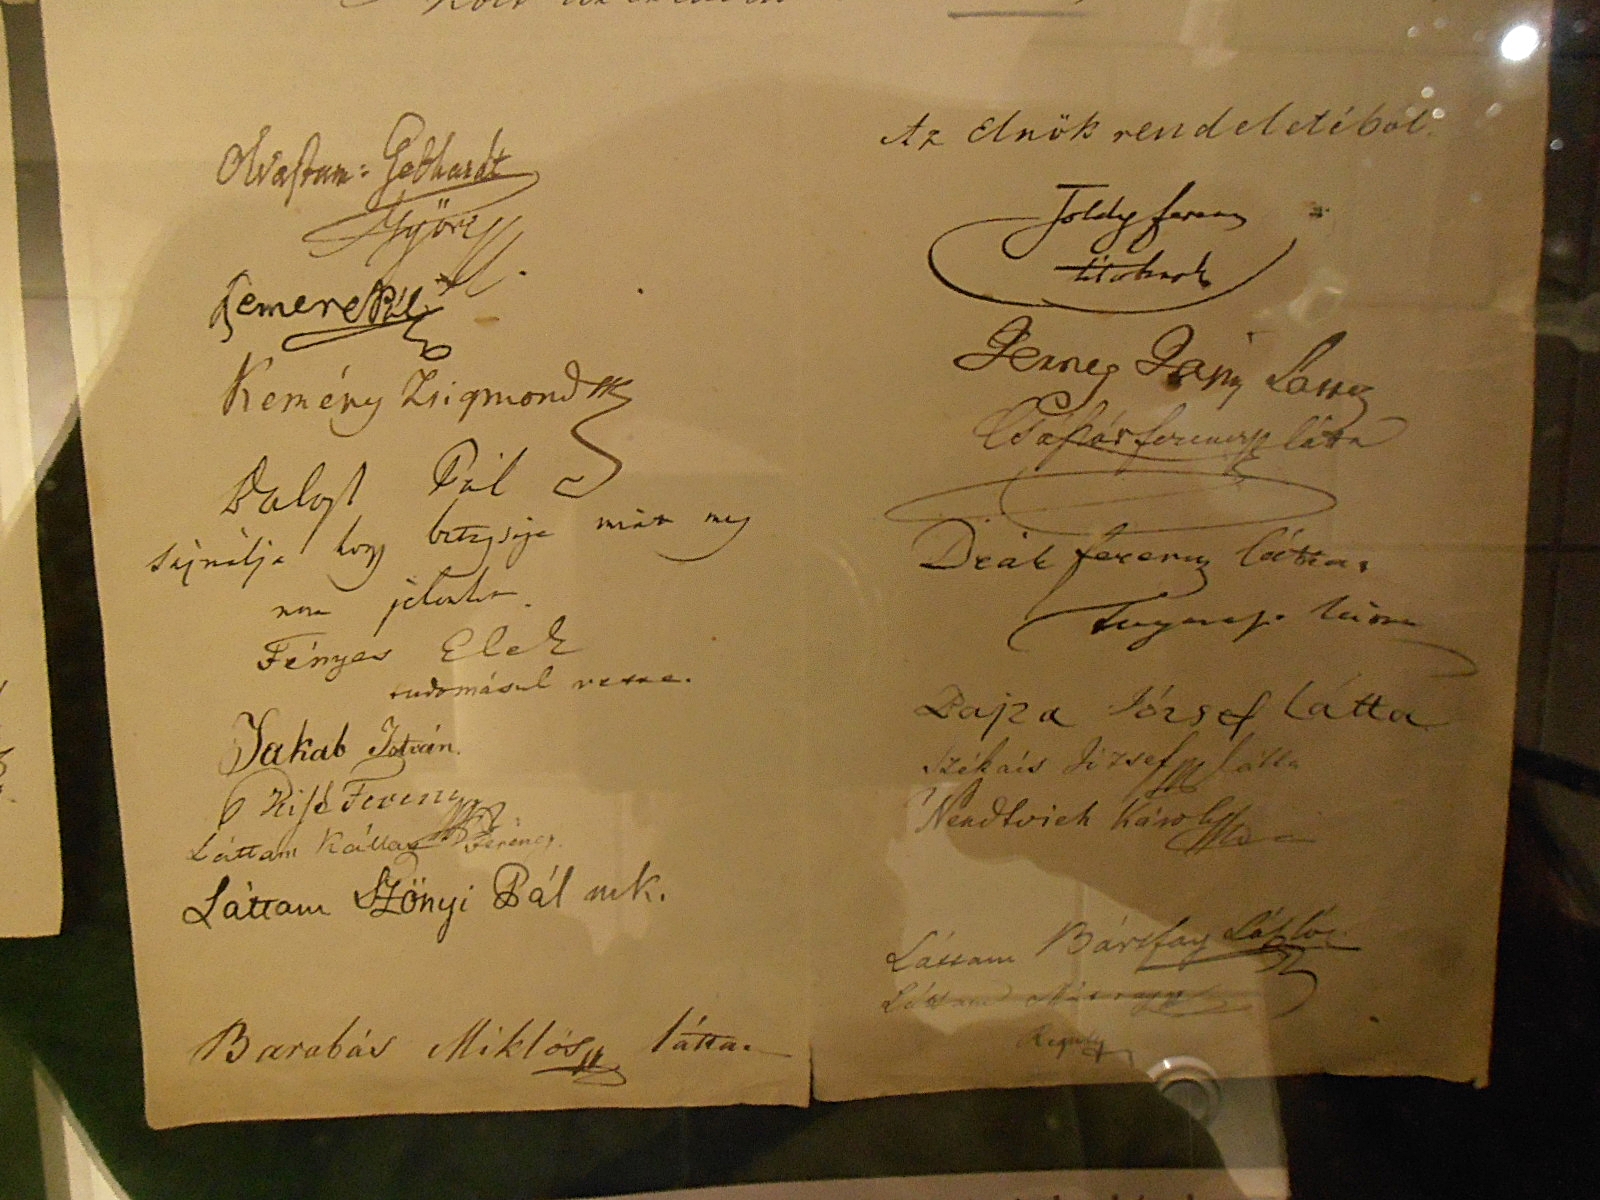 Olvastam: Gebhardt
György
Szemere Pál
Kemény Zsigmond mk
Balogh Pál
sajnálja hogy betegsége miatt meg
nem jelenhet.
Fényes Elek
tudomásul vette.
Jakab István.
Ferencz
Láttam Kállay Ferencz.
Láttam Szőnyi Pál mk.
Barabás Miklós látta.
Az Elnök rendeletéből.
Toldy Ferencz
titoknok
Császár Ferencz látta
Deák Ferencz látta.
Bajza József látta
Székács József látta
Nendtvich Károly
Láttam Bártfay László
Láttam
Reguly